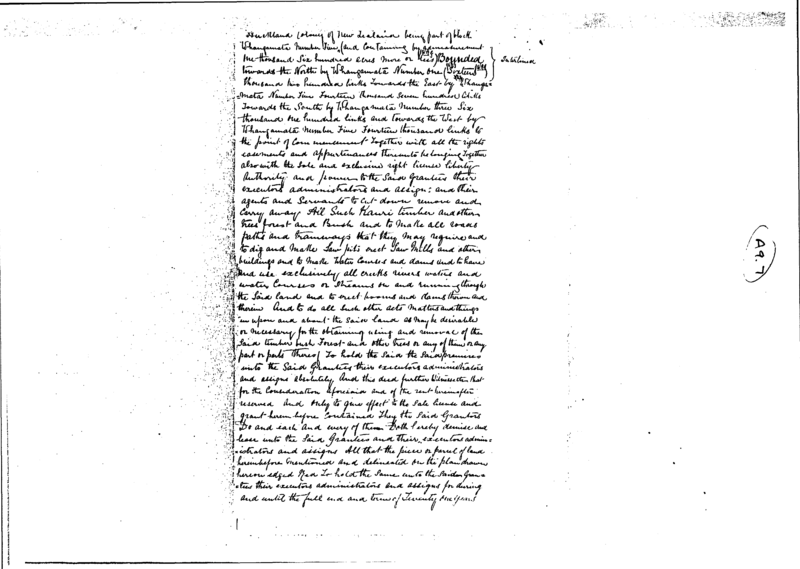 Auckland Colony of New Zealand being part of block
Whangamata Number Five (and containing by admeasurement
One thousand Six hundred acres more or less) Bounded
towards the North by Whangamata Number one (Sixteen
thousand two hundred links Towards the East by Whanga=
mata Number Five Fourteen thousand Seven hundred links
Towards the South by Whangamata Number three Six
thousand one hundred links and towards the West by
Whangamata Number Five Fourteen thousand links to
the point of Commencement Together with all the rights
easements and appurtenances thereunto belonging Together
also with the Sole and exclusive right license liberty
Authority and power to the Said Grantees their
executors administrators and assigns and their
agents and Servants to Cut down remove and
Carry away All Such Kauri timber and other
trees forest and Bush and to Make all roads
paths and tramways that they May require and
to dig and Make Saw pits erect Saw Mills and other
buildings and to Make Water Courses and dams and to have
and use exclusively all creeks rivers waters and
water Courses or Streams on and running through
the Said land and to erect booms and dams thereon and
therein And to do all Such other acts Matters and things
in upon and about the Said land as May be desirable
or necessary for the obtaining using and removal of the
Said timber bush Forest and other trees or any of them or any
part or parts thereof To hold the Said the Said premises
unto the Said Grantees their executors administrators
and assigns absolutely And this deed further Witnesseth that
for the Consideration aforesaid and of the rent hereinafter
reserved And Only to give effect to the Sale license and
grant herein before Contained They the Said Grantors
Do and each and every of them Doth hereby demise and
lease unto the Said Grantees and their executors admin=
istrators and assigns All that the piece or parcel of land
hereinbefore mentioned and delineated on the plan drawn
hereon edged Red To hold the Same unto the Said Gran=
tees their executors administrators and assigns for during
and until the full end and term of Seventy one years
A9.7